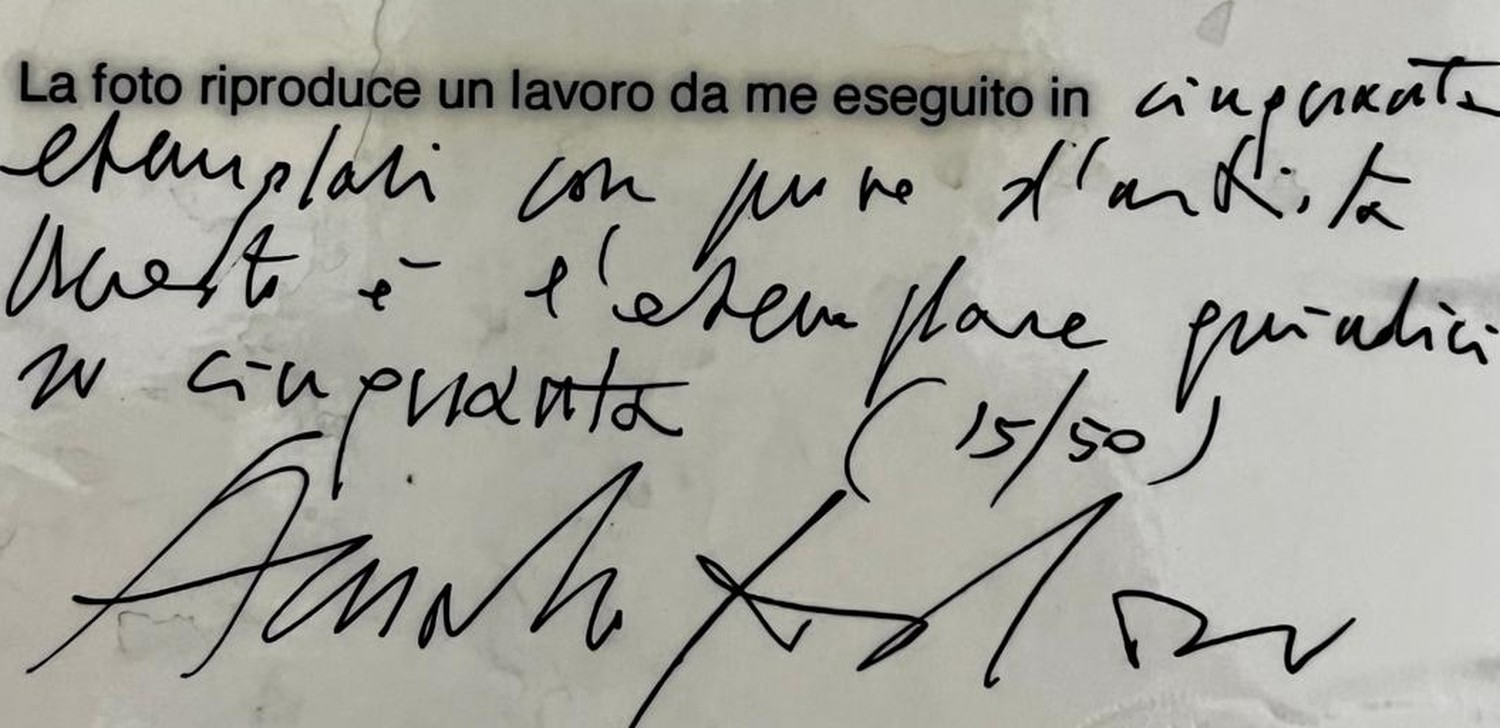 La foto riproduce un lavoro da me eseguito in cinquanta
esemplari con prove d'artista
Questo è l'esemplare quindici
su cinquanta (15/50)